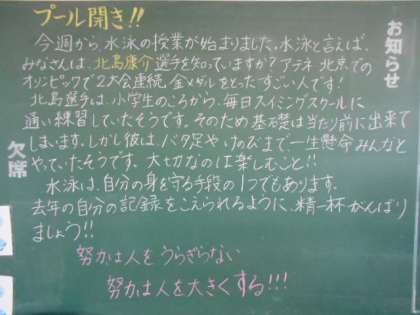 お知らせ
プール開き!!
今週から、水泳の授業が始まりました。水泳と言えば、
みなさんは、北島康介選手を知っていますか?アテネ 北京での
オリンピックで2大会連続 金メダルをとったすごい人です!
北島選手は、小学生のころから、毎日スイミングスクールに
通い練習していたそうです。そのため基礎は当たり前に出来て
しまいます。しかし彼は、バタ足や、けのびまで一生懸命みんなと
やっていたそうです。大切なのは楽しむこと!!
水泳は、自分の身を守る手段の1つでもあります。
去年の自分の記録をこえられるように、精一杯がんばり
ましょう!!
努力は人をうらぎらない
努力は人を大きくする!!!
欠席